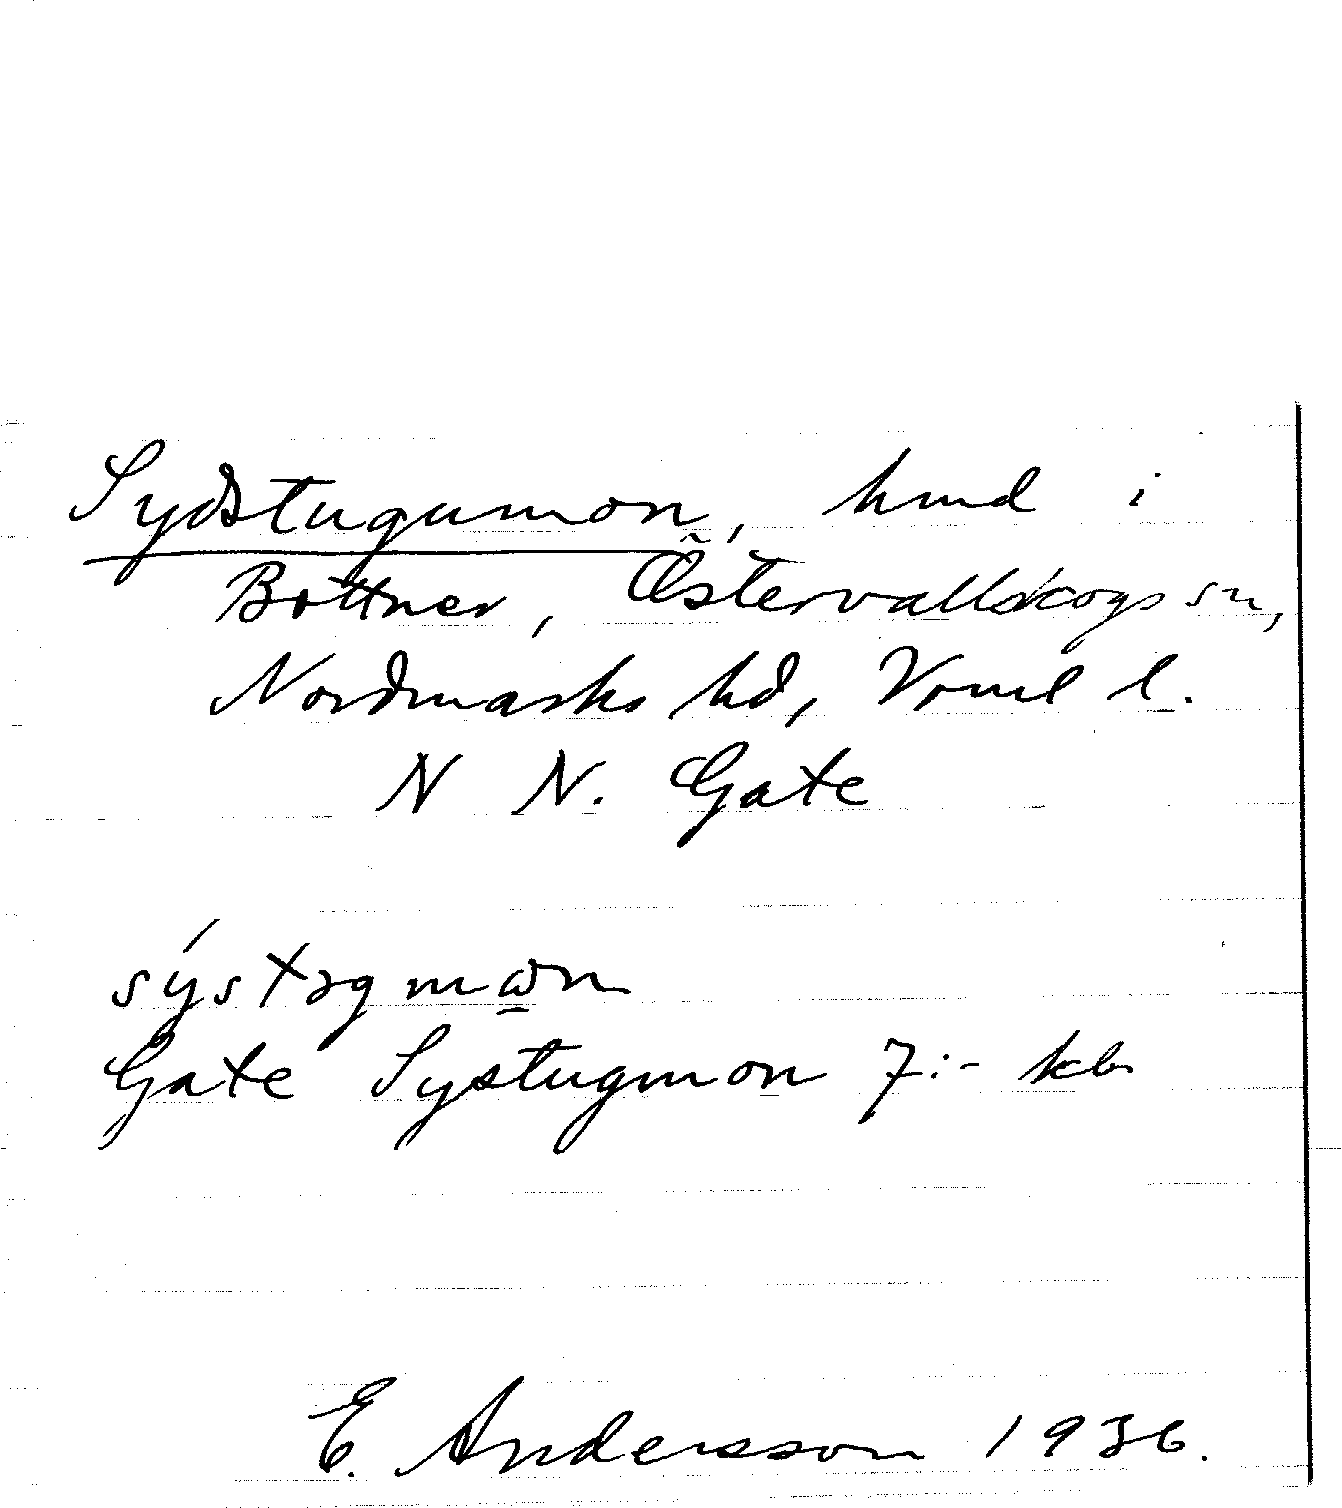 Sydstugumon, hmd i
Bottner, Östervallskogs sn,
Nordmarks hd, Vrml l.
N N. Gate
Gate Systugmon 7:- kb
E. Andersson 1936.